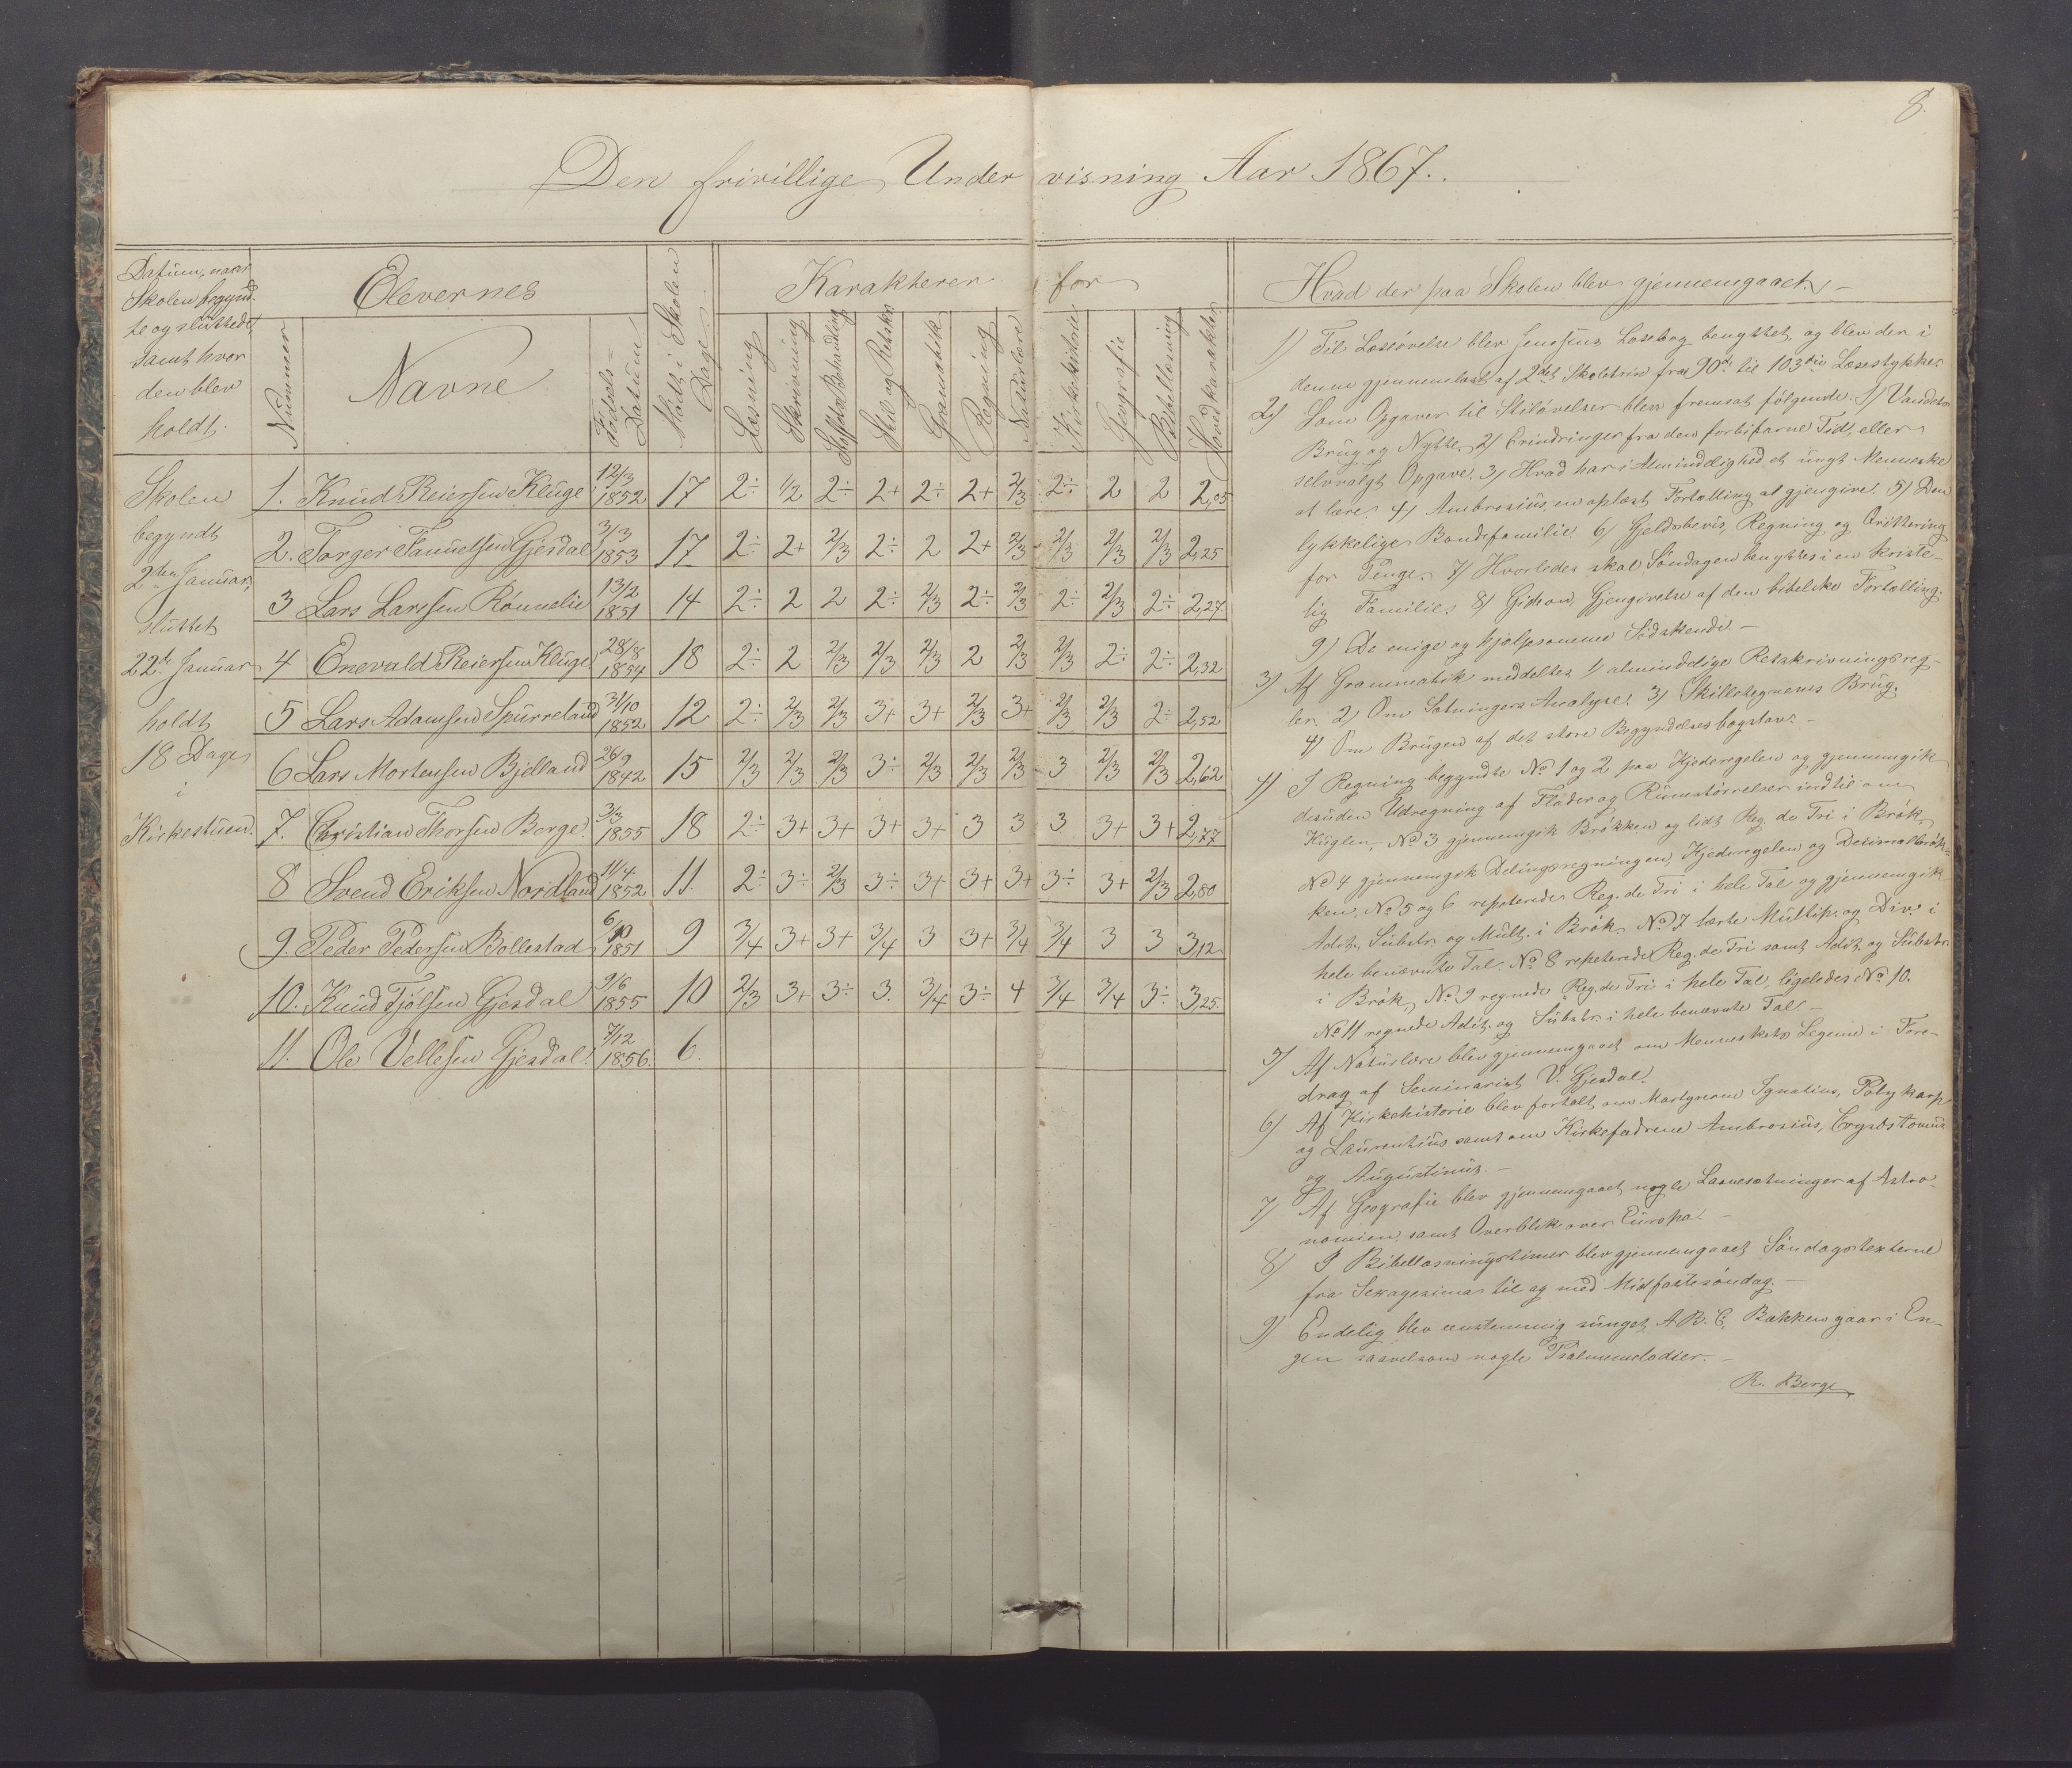 8.
Den frivillige Undervisning Aar 1867.
Datum, naar
Skolen begynd-
te og sluttede,
samt hvor
den blev
holdt.
Nummer
Elevernes
Navne
Fødsels-
Datum
Mødt i Skolen
Dage.
Karakterer for
Læsning
Skrivning
Stoffets Behandling
Stil og Retskr.
Gramatik
Regning
Naturlære
Kirkehistorie
Geografie
Bibellæsning
Hovedkarakter
Hvad der paa Skolen blev gjennemgaaet. –
Skolen
begyndt
2den Januar,
sluttet
22de Januar
holdt
18 Dage
i
Kirkestuen.
1. Knud Reiersen Kluge 12/3 1852 17 2÷ 1/2 2÷ 2+ 2÷ 2+ 2/3 2÷ 2 2 2,05
2. Torger Samuelsen Gjesdal 3/3 1853 17 2÷ 2+ 2/3 2÷ 2 2+ 2/3 2/3 2/3 2/3 2,25
3 Lars Larssen Rønnelie 13/2 1851 14 2÷ 2 2 2÷ 2/3 2÷ 2/3 2÷ 2/3 2÷ 2,27
4 Enevald Reiersen Kluge 28/8 1854 18 2÷ 2 2/3 2/3 2/3 2 2/3 2/3 2÷ 2÷ 2,32
5 Lars Adamsen Spurreland 31/10 1852 12 2÷ 2/3 2/3 3+ 3+ 2/3 3+ 2/3 2/3 2÷ 2,52
6 Lars Mortensen Bjelland 26/9 1842 15 2/3 2/3 2/3 3÷ 2/3 2/3 2/3 3 2/3 2/3 2,62
7. Christian Thorsen Berge 3/3 1855 18 2÷ 3+ 3+ 3+ 3+ 3 3 3 3+ 3+ 2,77
8 Svend Eriksen Nordland 11/4 1852 11. 2÷ 3÷ 2/3 3÷ 3+ 3+ 3+ 3÷ 3+ 2/3 2,80
9. Peder Pedersen Bollestad 6/10 1851 9 3/4 3+ 3+ 3/4 3 3+ 3/4 3/4 3 3 3,12
10. Knud Tjølsen Gjesdal 9/6 1855 10 2/3 3+ 3÷ 3. 3/4 3÷ 4 3/4 3/4 3÷ 3,25
11. Ole Vellesen Gjesdal 7/12 1856. 6.
1) Til Læseøvelse blev Jensens Læsebog benyttet, og blev der i
denne gjennemlæst af 2det Skoletrin fra 90de til 103die Læsestykke.
2) Som Opgaver til Stiløvelser blev fremsat følgende: 1) Vandets
Brug og Nytte. 2) Erindringer fra den forbifarne Tid, eller
selvvalgt Opgave. 3) Hvad har i Almindelighed et ungt Menneske
at lære. 4) Ambrosius, en oplæst Fortælling at gjengive. 5) Den
lykkelige Bondefamilie. 6) Gjeldsbevis, Regning og Qvittering
for Penge. 7) Hvorledes skal Søndagen benyttes i en kriste-
lig Familie. 8) Gideon, Gjengivelse af den bibelske Fortælling.
9) De enige og hjelpsomme Sødskende. –
3) Af Grammatik meddeltes 1) almindelige Retskrivningsreg-
ler. 2) Om Sætningers Analyse. 3) Skilletegnenes Brug.
4) Om Brugen af det store Begyndelsesbogstav. –
4) I Regning begyndte No 1 og 2 paa Kjederegelen og gjennemgik
desuden Udregning af Flader og Rumstørrelser indtil om
Kuglen, No 3 gjennemgik Brøkken og lidt Reg. de Tri i Brøk,
No 4 gjennemgik Delingsregningen, Kjederegelen og Desimalbrøk-
ken, No 5 og 6 repeterede Reg. de Tri i hele Tal og gjennemgik
Adit., Substr. og Mult. i Brøk, No 7 lærte Multip. og Div. i
hele benævnte Tal. No 8 repeterede Reg. de Tri samt Adit. og Substr.
i Brøk, No 9 regnede Reg. de Tri i hele Tal, ligeledes No 10.
No 11 regnede Adit. og Substr. i hele benævnte Tal. –
5) Af Naturlære blev gjennemgaaet om Menneskets Legeme i Fore-
drag af Seminarist V. Gjesdal.
6) Af Kirkehistorie blev fortalt om Martyrerne Ignatius, Polykarp
og Laurentius samt om Kirkefædrene Ambrosius, Crysostomus
og Augustinus. –
7) Af Geografie blev gjennemgaaet nogle Læresætninger af Astro-
nomien, samt Overblik over Europa. –
8) I Bibellæsningstimer blev gjennemgaaet Søndagstexterne
fra Sexagesima til og med Midfastesøndag. –
9) Endelig blev eenstemmig sunget A. B. C. Bækken gaar i En-
gen saavelsom nogle Psalmemelodier. –
R. Berge